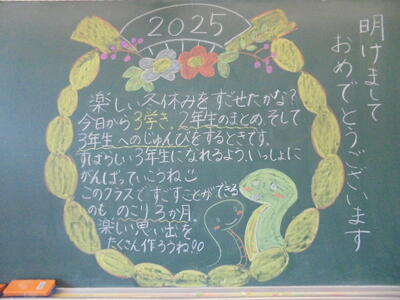 2025
明けまして
おめでとうございます
楽しい冬休みをすごせたかな？
今日から3学き。2年生のまとめ、そして
3年生へのじゅんびをするときです。
すばらしい3年生になれるよう、いっしょに
がんばっていこうね
このクラスですごすことができる
のも のこり3か月。
楽しい思い出を
たくさん作ろうね!!